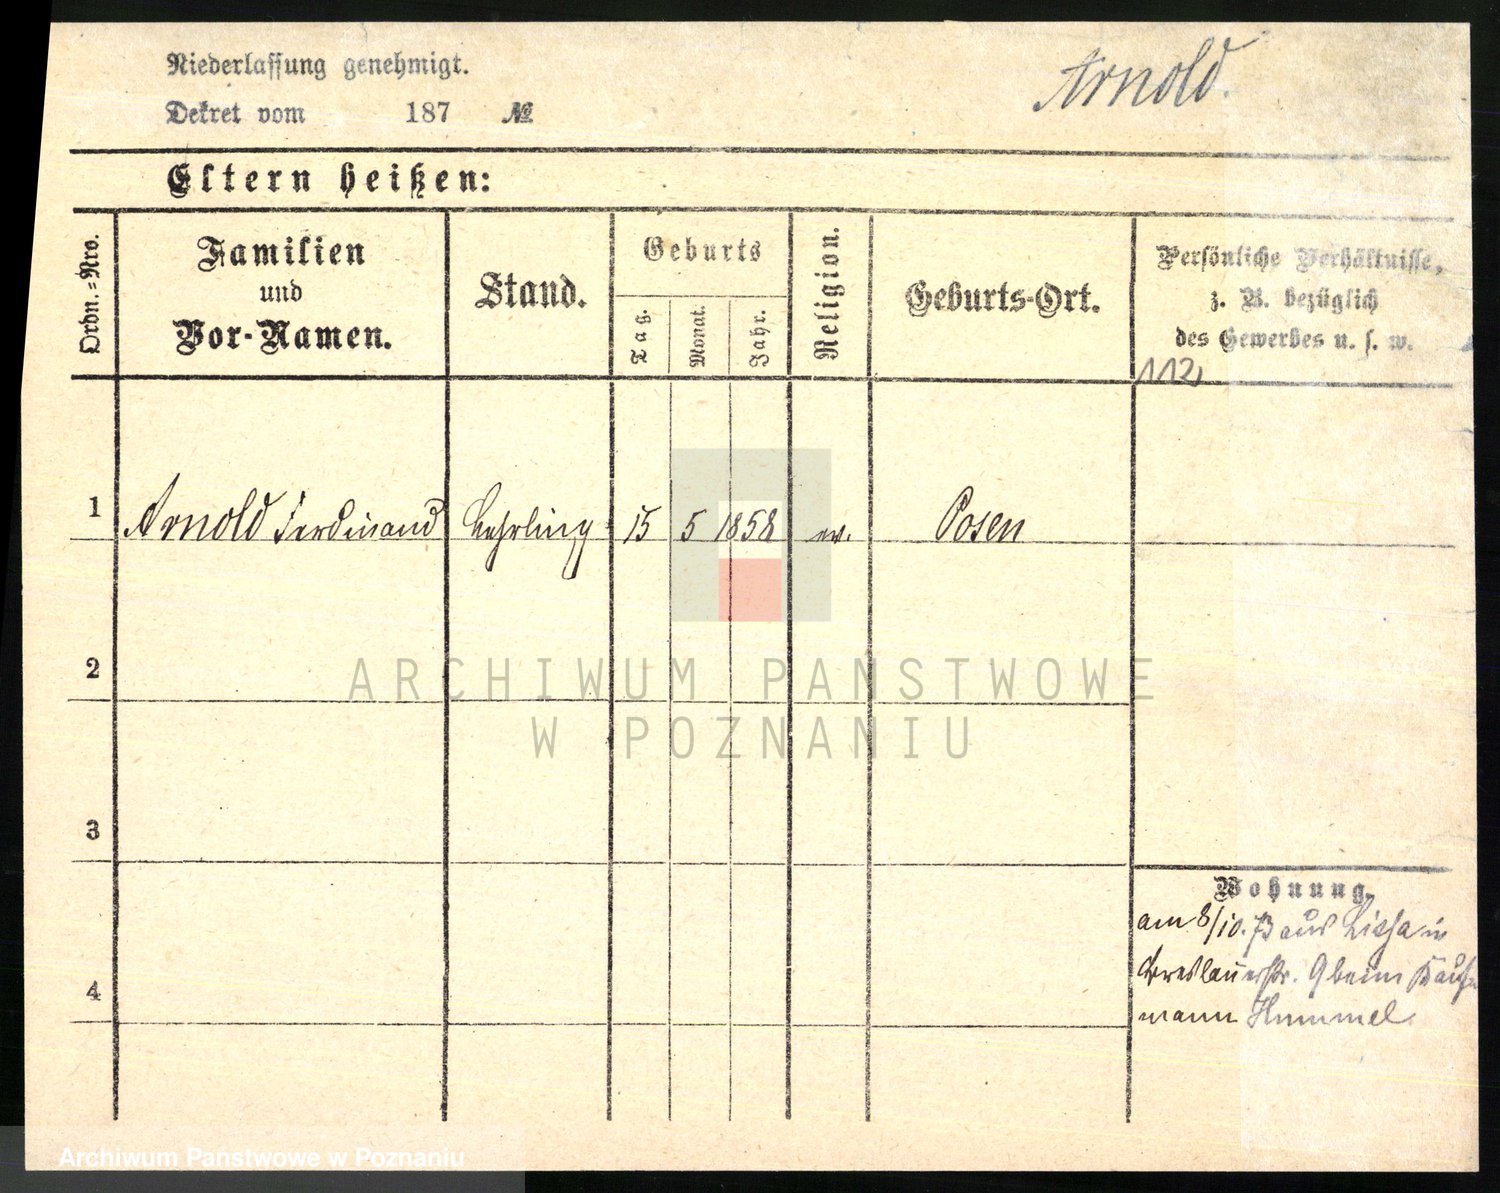 Niederlassung genehmigt.
Dekret vom 187 №
Arnold.
Eltern heißen:
Ordn.=Nro.
Familien und Vor-Namen.
Stand.
Geburts
Tag.
Monat.
Jahr.
Religion.
Geburts-Ort.
Persönliche Verhältnisse,
z. B. bezüglich
des Gewerbes u. s. w.
112
1 Arnold Ferdinand Lehrling 15 5 1858 ev. Posen
2
3
4
Wohnung.
am 8/10. 73 aus Lissa in
Breslauerstr. 9 beim Kauf-
mann Hummel.
ARCHIWUM PAŃSTWOWE
W POZNANIU
Archiwum Państwowe w Poznaniu